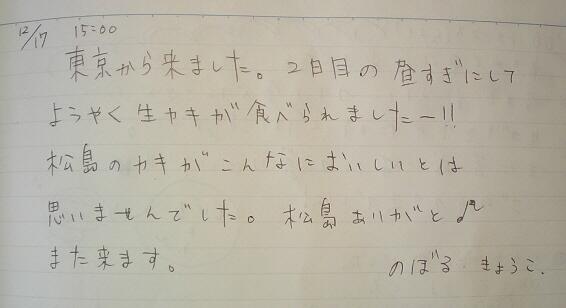 12/17 15:00
東京から来ました。2日目の昼すぎにして
ようやく生カキが食べられましたー!!
松島のカキがこんなにおいしいとは
思いませんでした。松島ありがと♪
また来ます。 のぼる・きょうこ.